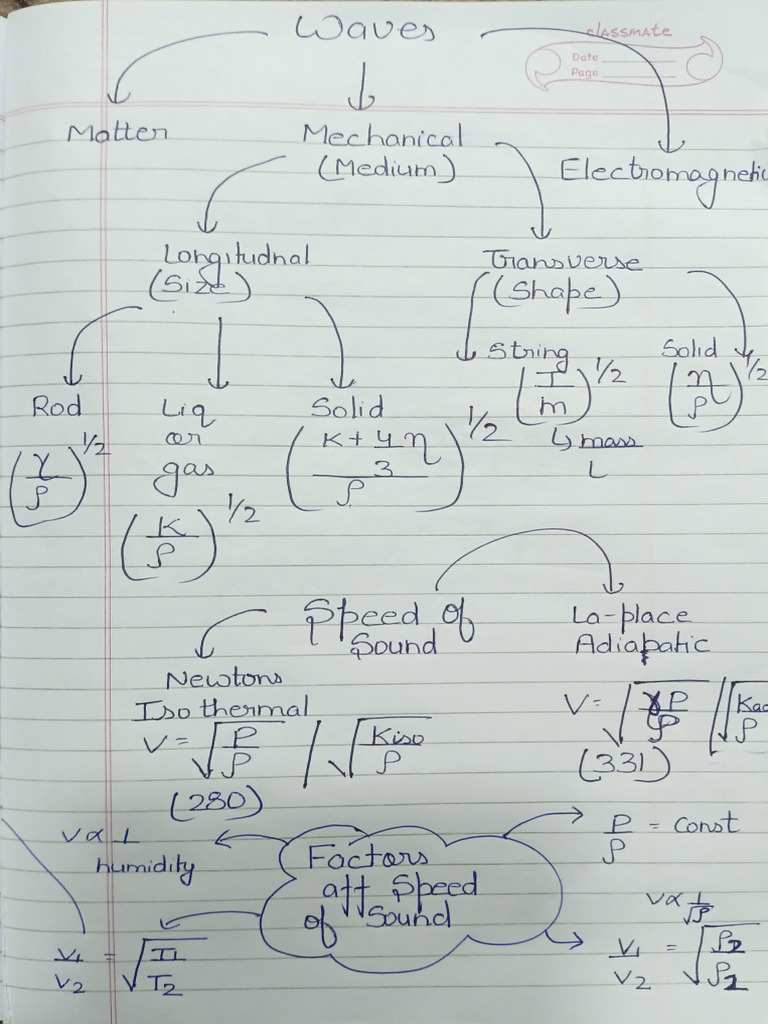 Waves
classmate
Date
Page
Matter
Mechanical
(Medium)
Electromagnetic
Longitudnal
(Size)
Transverse
(Shape)
String
(T/m)^1/2
↳ mass
L
Solid
(η/ρ)^1/2
Rod
(Y/ρ)^1/2
Liq
or
gas
(K/ρ)^1/2
Solid
((K + 4/3 η)/ρ)^1/2
Speed of
Sound
Newtons
Isothermal
V = √(P/ρ) / √(Kiso/ρ)
(280)
La-place
Adiapatic
V = √(γP/ρ) / √(Kad/ρ)
(331)
Factors
aff Speed
of Sound
V ∝ 1
humidity
P/ρ = Const
V1/V2 = √(T1/T2)
V ∝ 1/√ρ
V1/V2 = √(ρ2/ρ1)